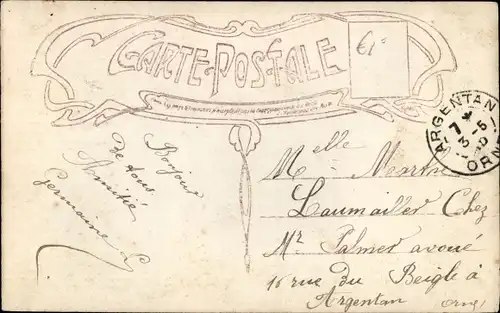 CARTE-POSTALE
€1=
ARGENTAN
7 *
3-5
ORNE
Bonjour
de tous
Amitié
Germaine L
Melle Marthe
Laumailler Chez
Mr Palmer avoué
16 rue du Beigle à
Argentan Orne